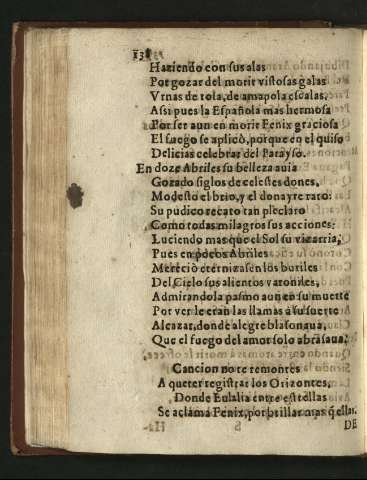 138
Haziendo con sus alas
Por gozar del morir vistosas galas
Vrnas de rosa, de amapola escalas.
Assi pues la Española mas hermosa
Por ser aun en morir Fenix graciosa
El fuego se aplicò, porque en el quiso
Delicias celebrar del Parayso.
En doze Abriles su belleza auia
Gozado siglos de celestes dones,
Modesto el brio, y el donayre raro:
Su pudico recato tan preclaro
Como todas milagros sus acciones:
Luciendo mas que el Sol su vizarria,
Pues en pocos Abriles
Mereciò eternizasen los buriles
Del Cielo sus alientos varoniles,
Admirandola pasmo aun en su muerte
Por ver le eran las llamas à su suerte
Alcazar, donde alegre blasonaua,
Que el fuego del amor solo abrasaua.
Cancion no te remontes
A querer registrar los Orizontes,
Donde Eulalia entre estrellas
Se aclama Fenix, por brillar mas q̃ ellas.
S
DE